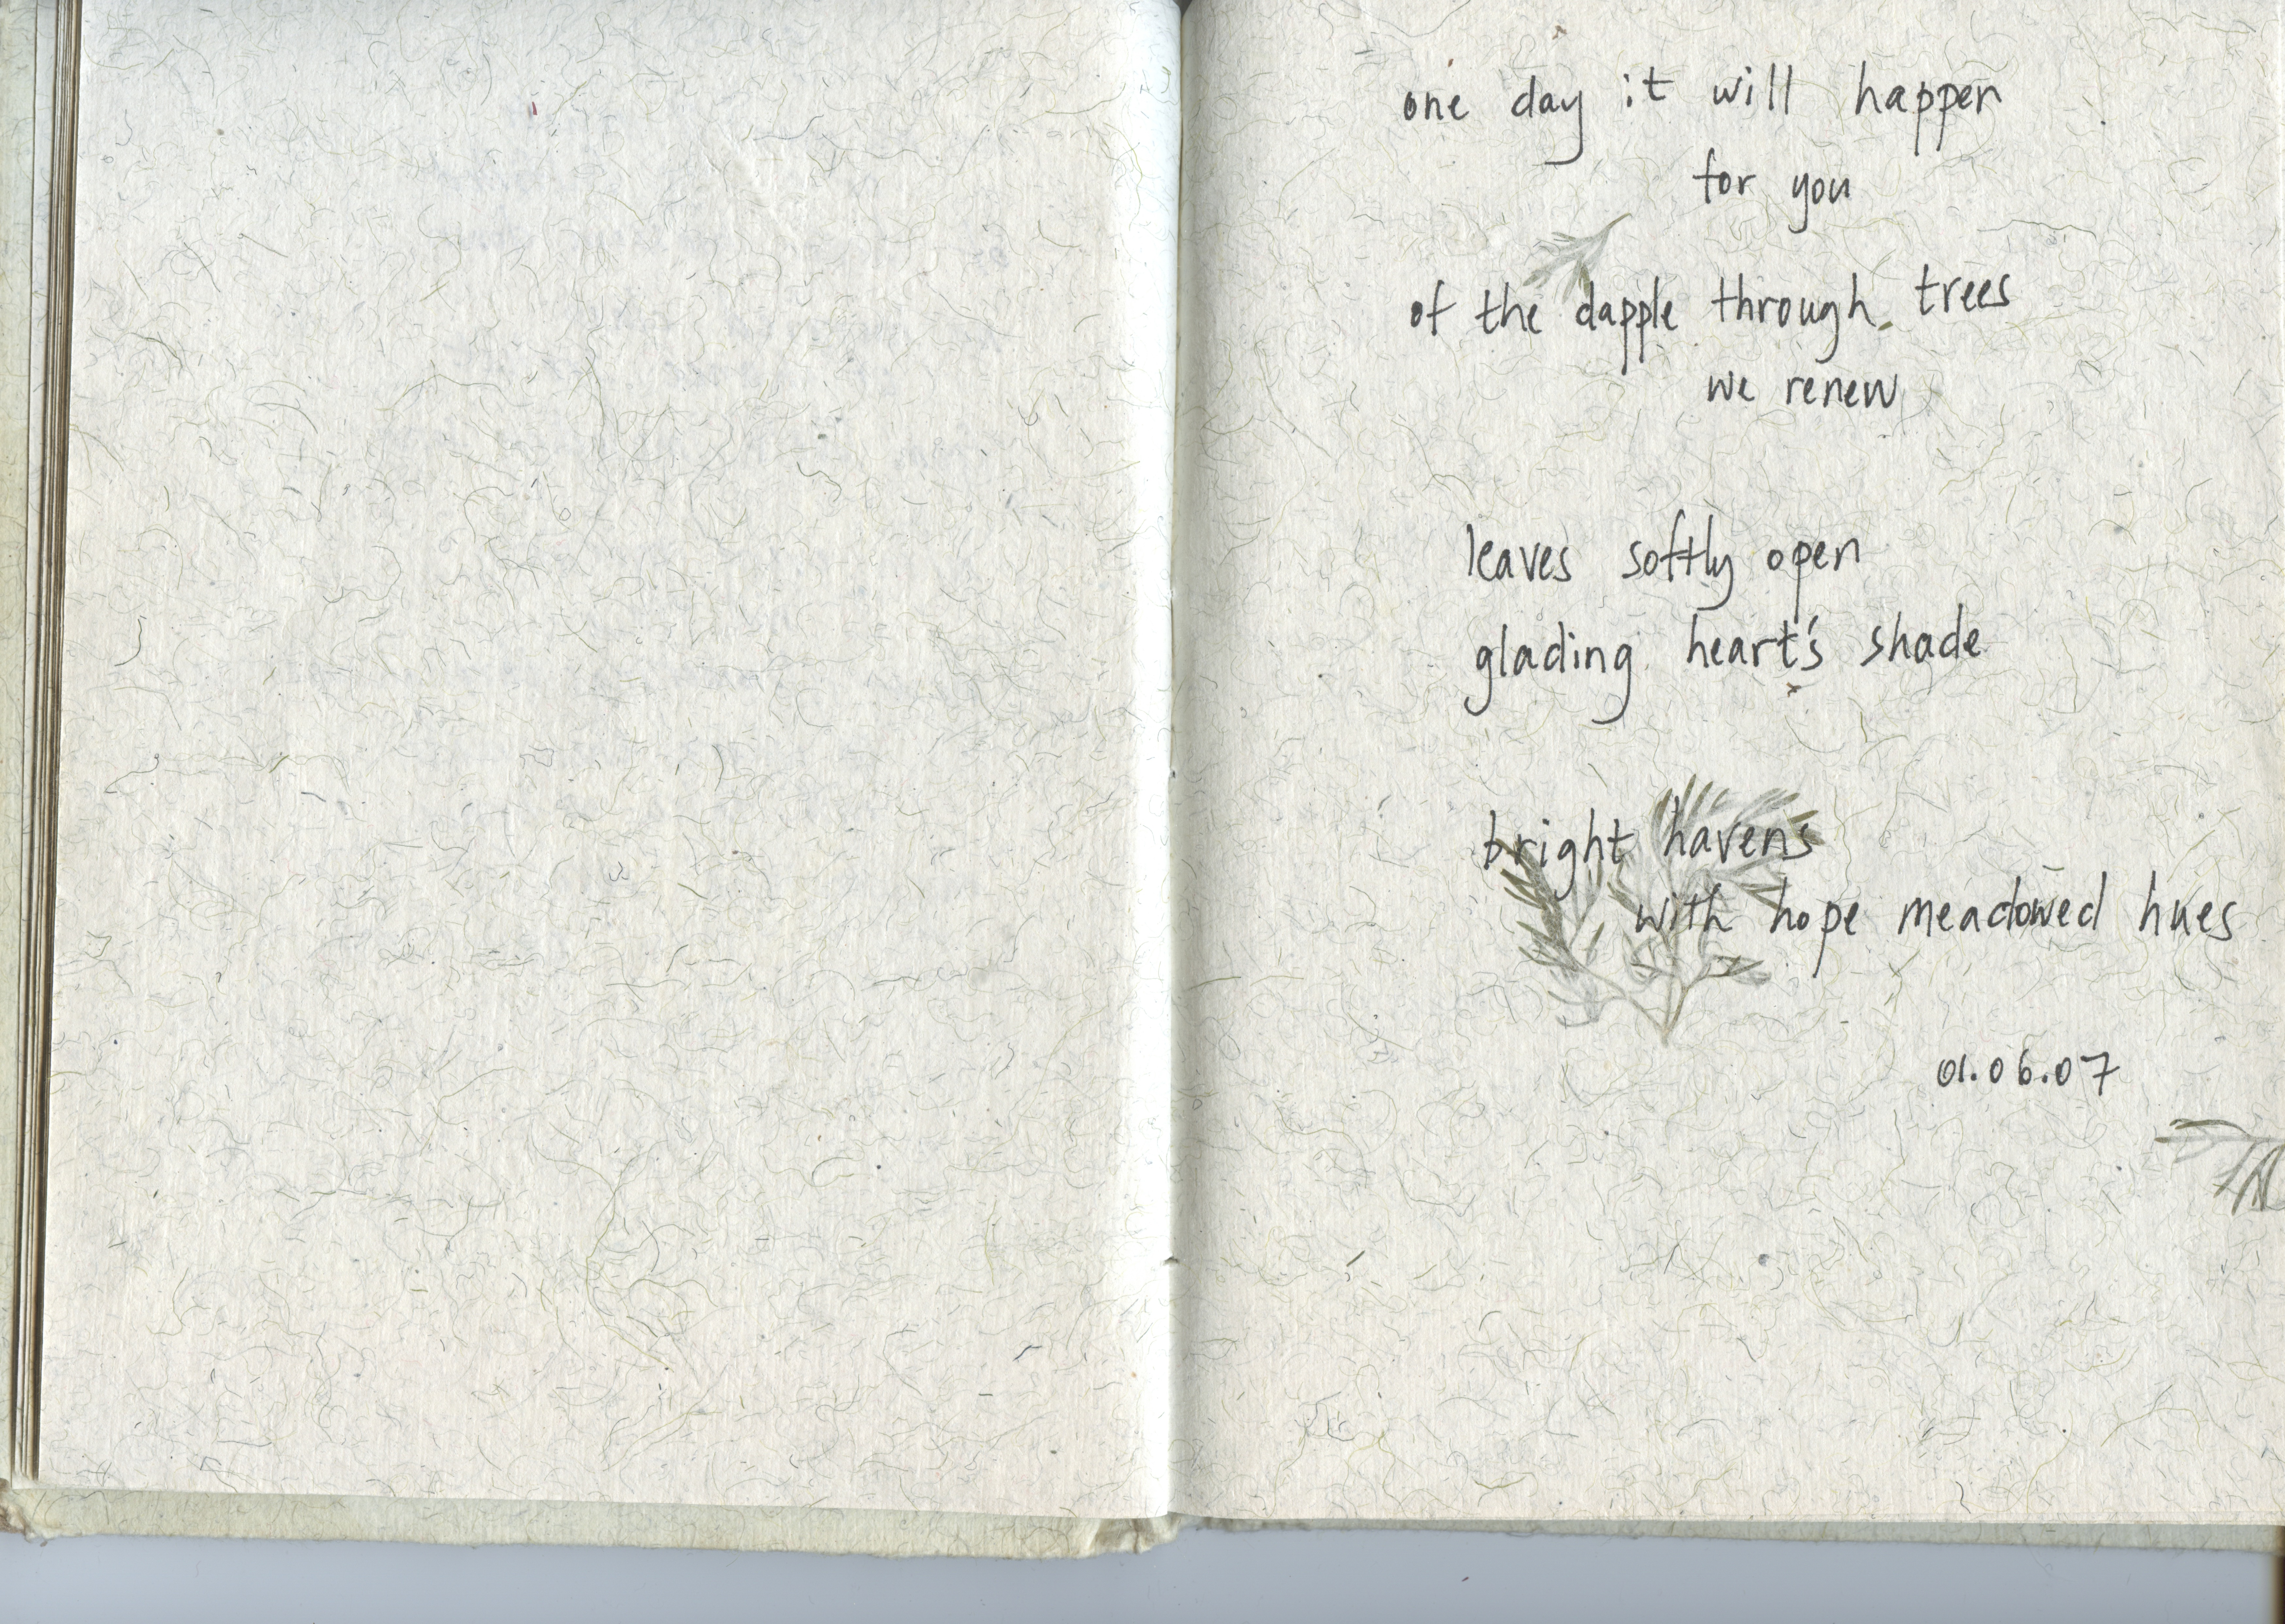 one day it will happen
for you
of the dapple through trees
we renew
leaves softly open
glading heart's shade
bright havens
with hope meadowed hues
01.06.07